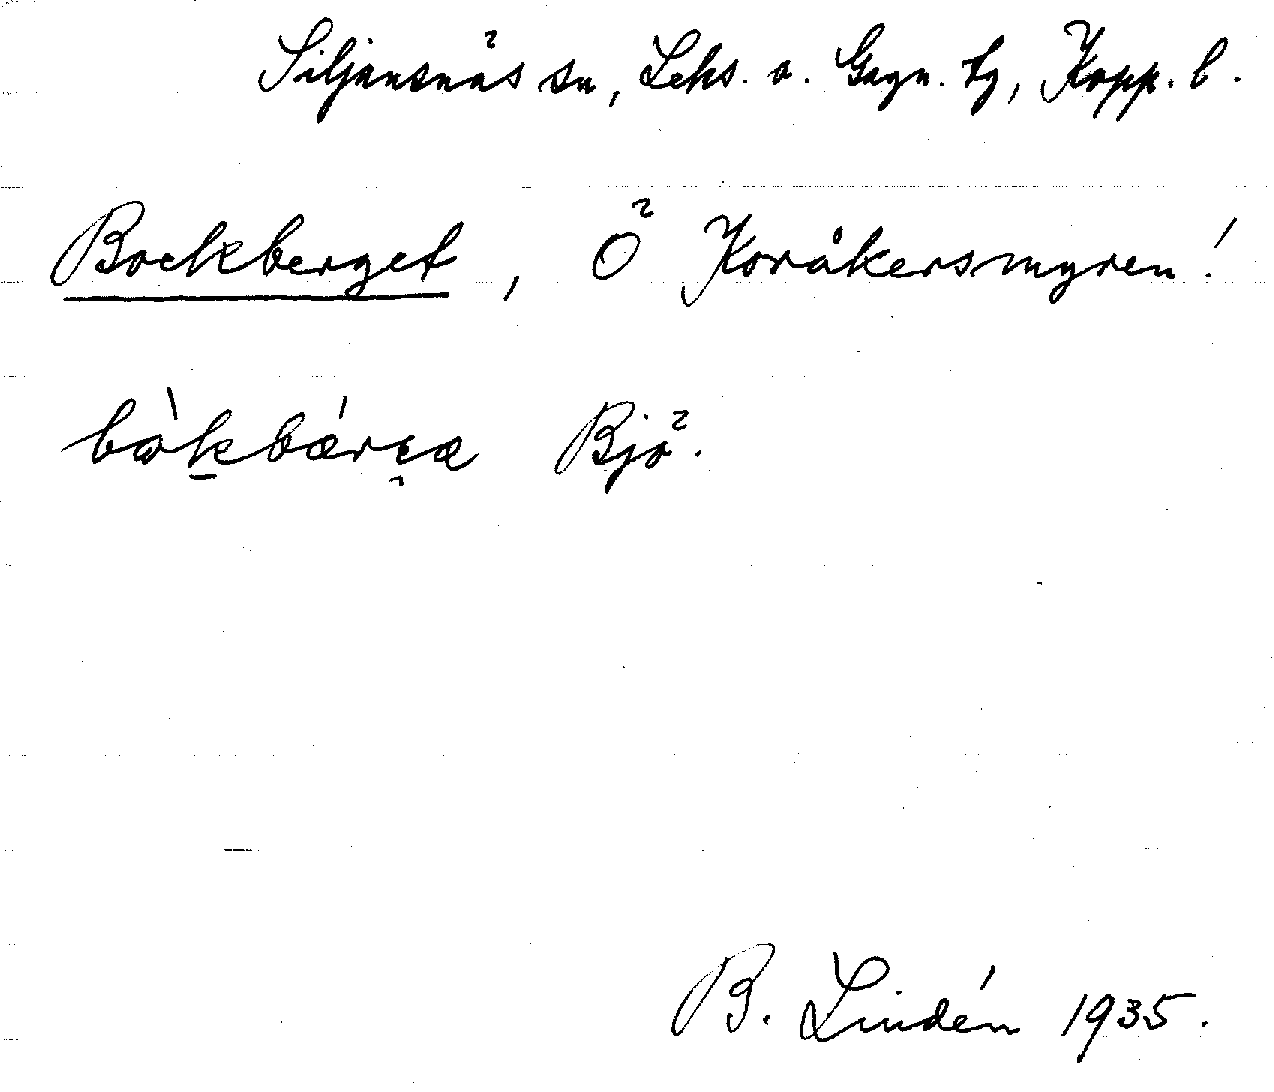 Siljansnäs sn, Leks. o. Gagn. tg, Kopp. l.
Bockberget, Ö Koråkersmyren!
Bjö.
B. Lindén 1935.